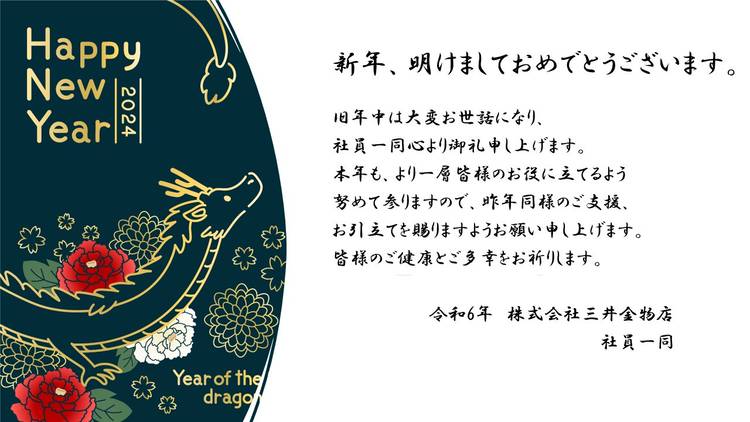 Happy
New
Year
2024
新年、明けましておめでとうございます。
旧年中は大変お世話になり、
社員一同心より御礼申し上げます。
本年も、より一層皆様のお役に立てるよう
努めて参りますので、昨年同様のご支援、
お引立てを賜りますようお願い申し上げます。
皆様のご健康とご多幸をお祈りします。
令和6年 株式会社三井金物店
社員一同
Year of the
dragon